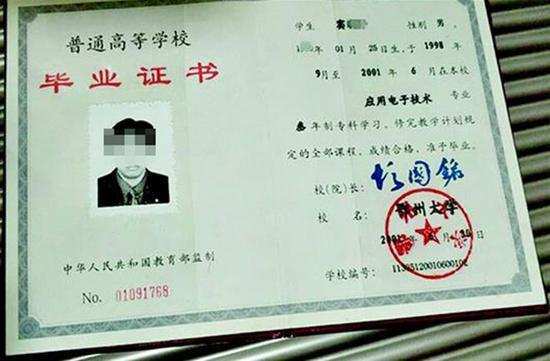 普通高等学校
毕业证书
中华人民共和国教育部监制
No. 01091768
学生 性别 男,
年01月25日生,于1998年
9月至 2001年 6月在本校
应用电子技术 专业
叁年制专科学习,修完教学计划规
定的全部课程,成绩合格,准予毕业。
校(院)长:
校 名: 鄂州大学
2001 年 月 30日
学校编号: